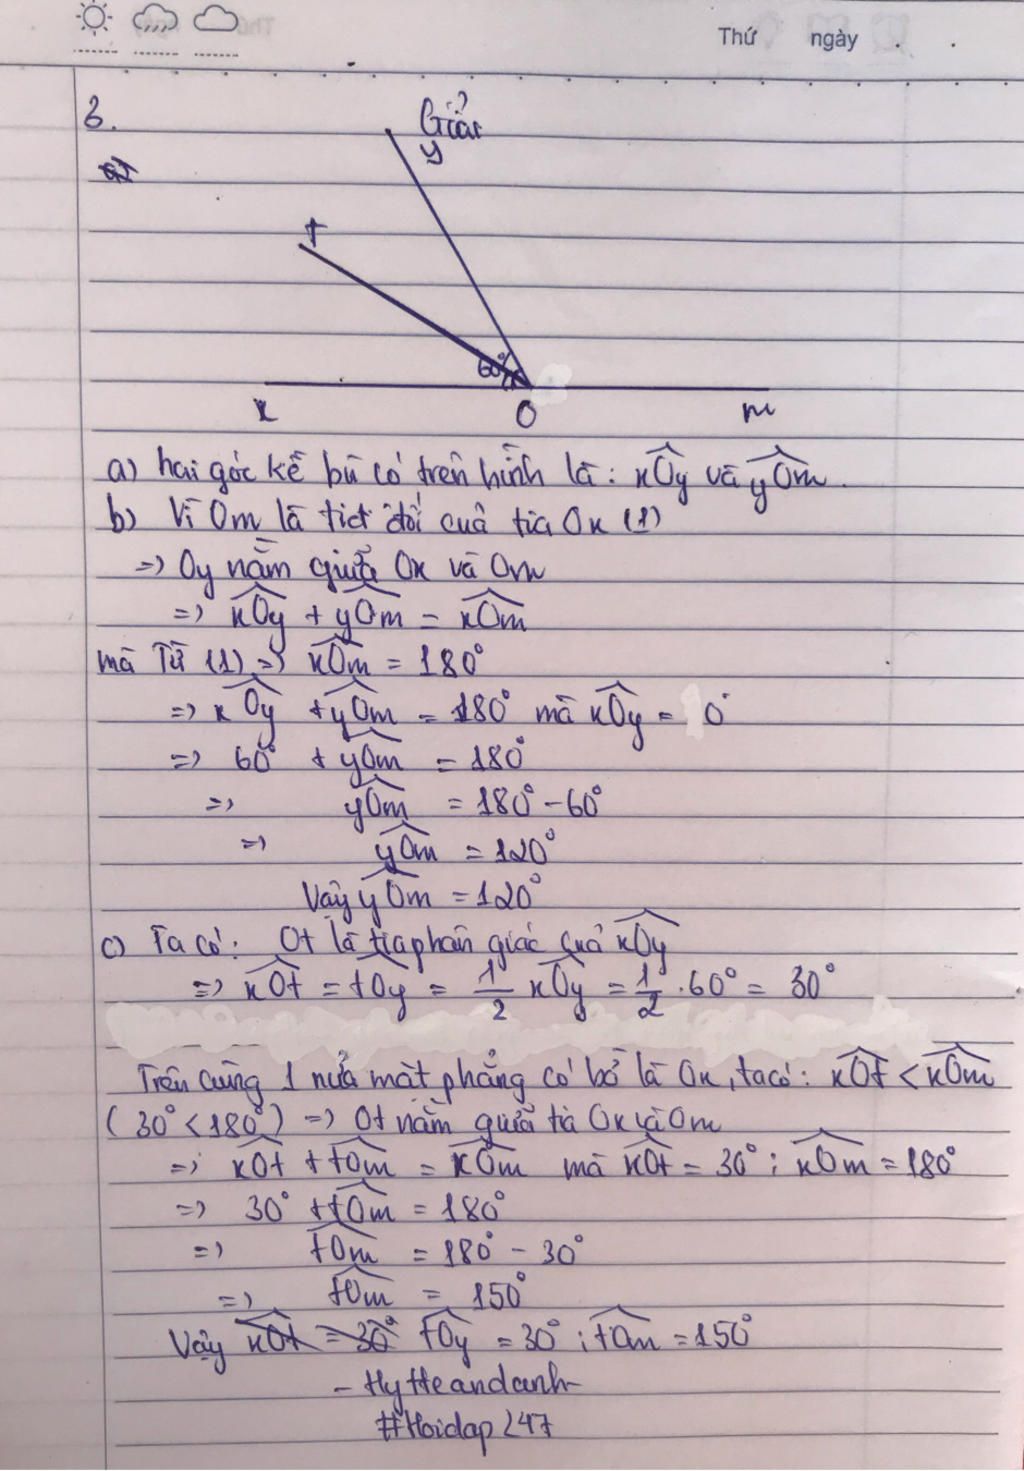 Thứ ngày . .
3.
Giải
y
t
60°
x O m
a) hai góc kề bù có trên hình là: xOy và yOm.
b) Vì Om là tia đối của tia Ox (1)
=> Oy nằm giữa Ox và Om
=> xOy + yOm = xOm
mà Từ (1) => xOm = 180°
=> xOy + yOm = 180° mà xOy = 0°
=> 60° + yOm = 180°
=> yOm = 180° - 60°
=> yOm = 120°
Vậy yOm = 120°
c) Ta có: Ot là tia phân giác của xOy
=> xOt = tOy = 1/2 xOy = 1/2 . 60° = 30°
Trên cùng 1 nửa mặt phẳng có bờ là Ox, ta có: xOt < xOm
(30° < 180°) => Ot nằm giữa tia Ox và Om
=> xOt + tOm = xOm mà xOt = 30° ; xOm = 180°
=> 30° + tOm = 180°
=> tOm = 180° - 30°
=> tOm = 150°
Vậy xOt = 30° tOy = 30° ; tOm = 150°
- HyHeandanh-
#Hoidap247